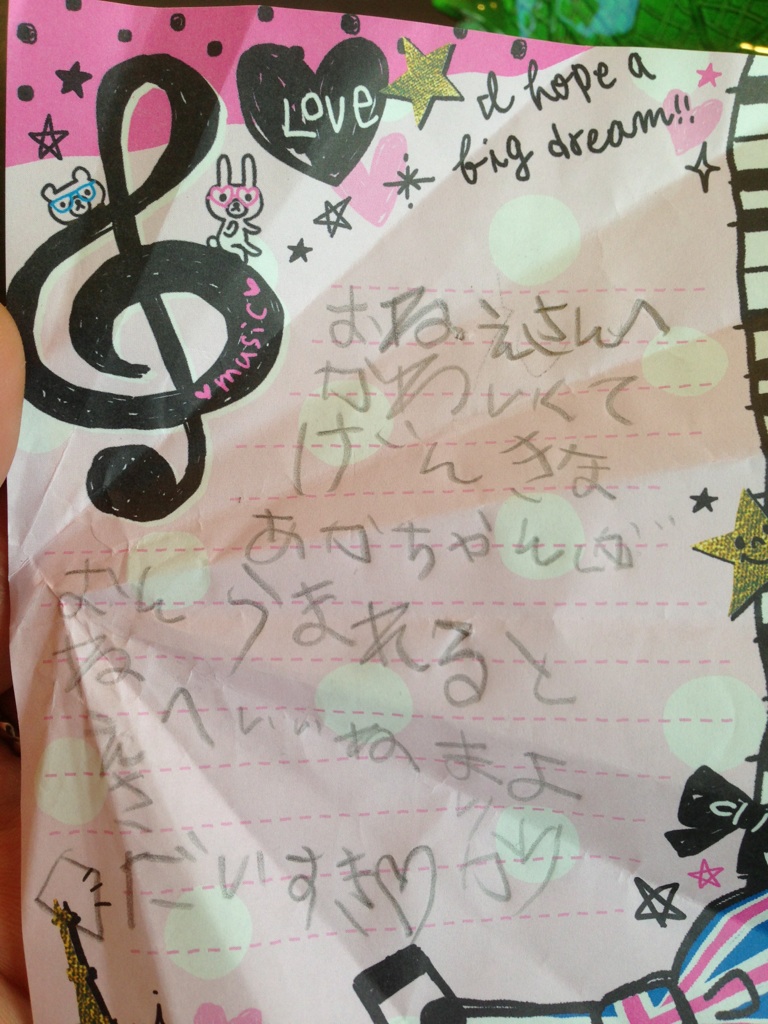 LOVE
I hope a
big dream!!
music
おねえさんへ
かわいくて
げんきな
あかちゃんが
うまれると
いいね
まりか
より
おねえさ
んへ
だいすき♡